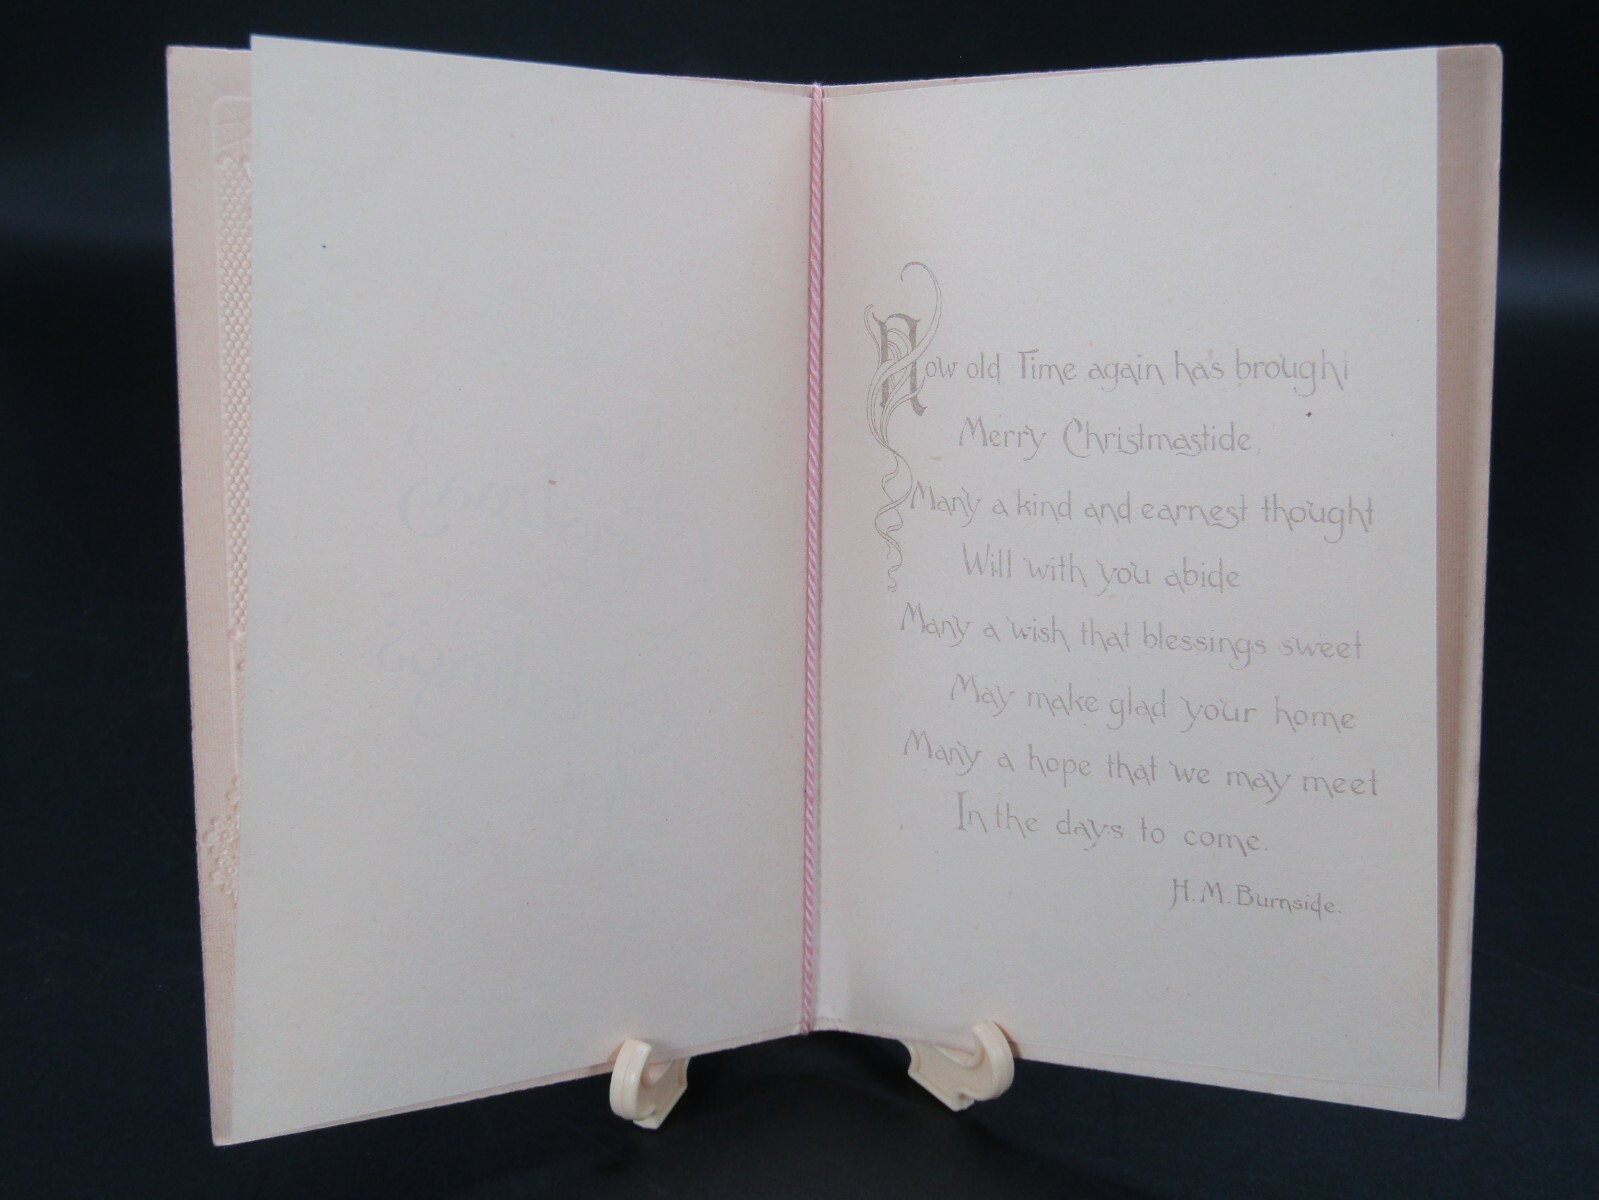 Now old Time again has brought
Merry Christmastide,
Many a kind and earnest thought
Will with you abide
Many a wish that blessings sweet
May make glad your home
Many a hope that we may meet
In the days to come.
H. M. Burnside.